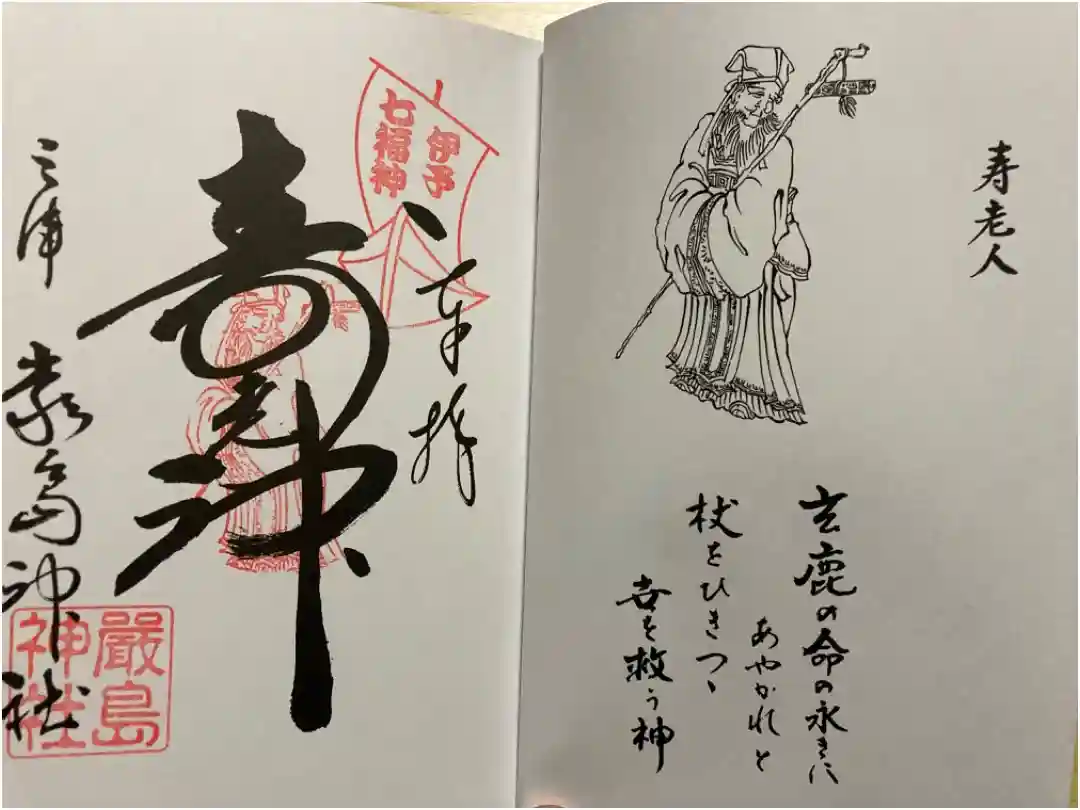 寿老人
玄鹿の命の永きに
あやかれと
杖をひきつゝ
世を救う神
奉拝
伊予
七福神
寿老神
三津
厳島神社
嚴島
神社